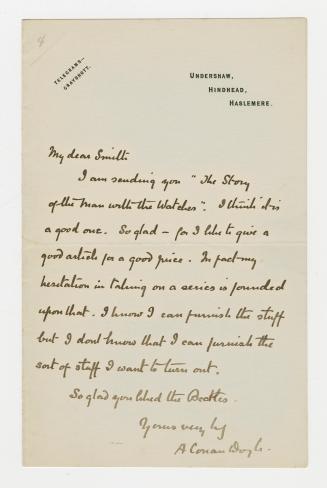 4
TELEGRAMS—
GRAYSHOTT.
UNDERSHAW,
HINDHEAD,
HASLEMERE.
My dear Smith
I am sending you "The Story
of the Man with the Watches". I think it is
a good one. So glad — for I like to give a
good article for a good price. In fact my
hesitation in taking on a series is founded
upon that. I know I can furnish the stuff
but I dont know that I can furnish the
sort of stuff I want to turn out.
So glad you liked the Beetles.
Yours very truly
A Conan Doyle.